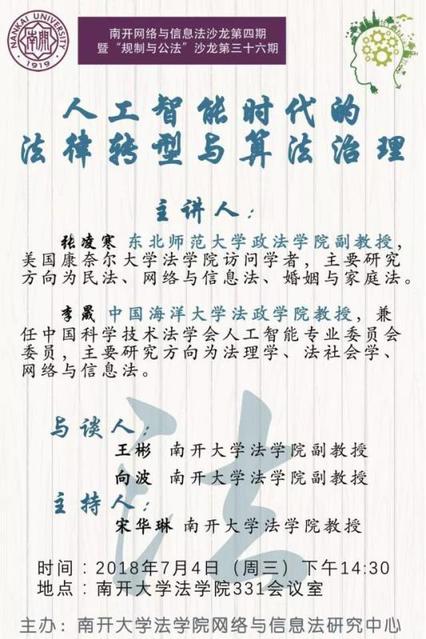 NANKAI UNIVERSITY
南開
1919
南开网络与信息法沙龙第四期
暨“规制与公法”沙龙第三十六期
人工智能时代的
法律转型与算法治理
主讲人：
张凌寒 东北师范大学政法学院副教授，
美国康奈尔大学法学院访问学者，主要研究
方向为民法、网络与信息法、婚姻与家庭法。
李晟 中国海洋大学法政学院教授，兼
任中国科学技术法学会人工智能专业委员会
委员，主要研究方向为法理学、法社会学、
网络与信息法。
与谈人：
王彬 南开大学法学院副教授
向波 南开大学法学院副教授
主持人：
宋华琳 南开大学法学院教授
法
时间：2018年7月4日（周三）下午14:30
地点：南开大学法学院331会议室
主办：南开大学法学院网络与信息法研究中心